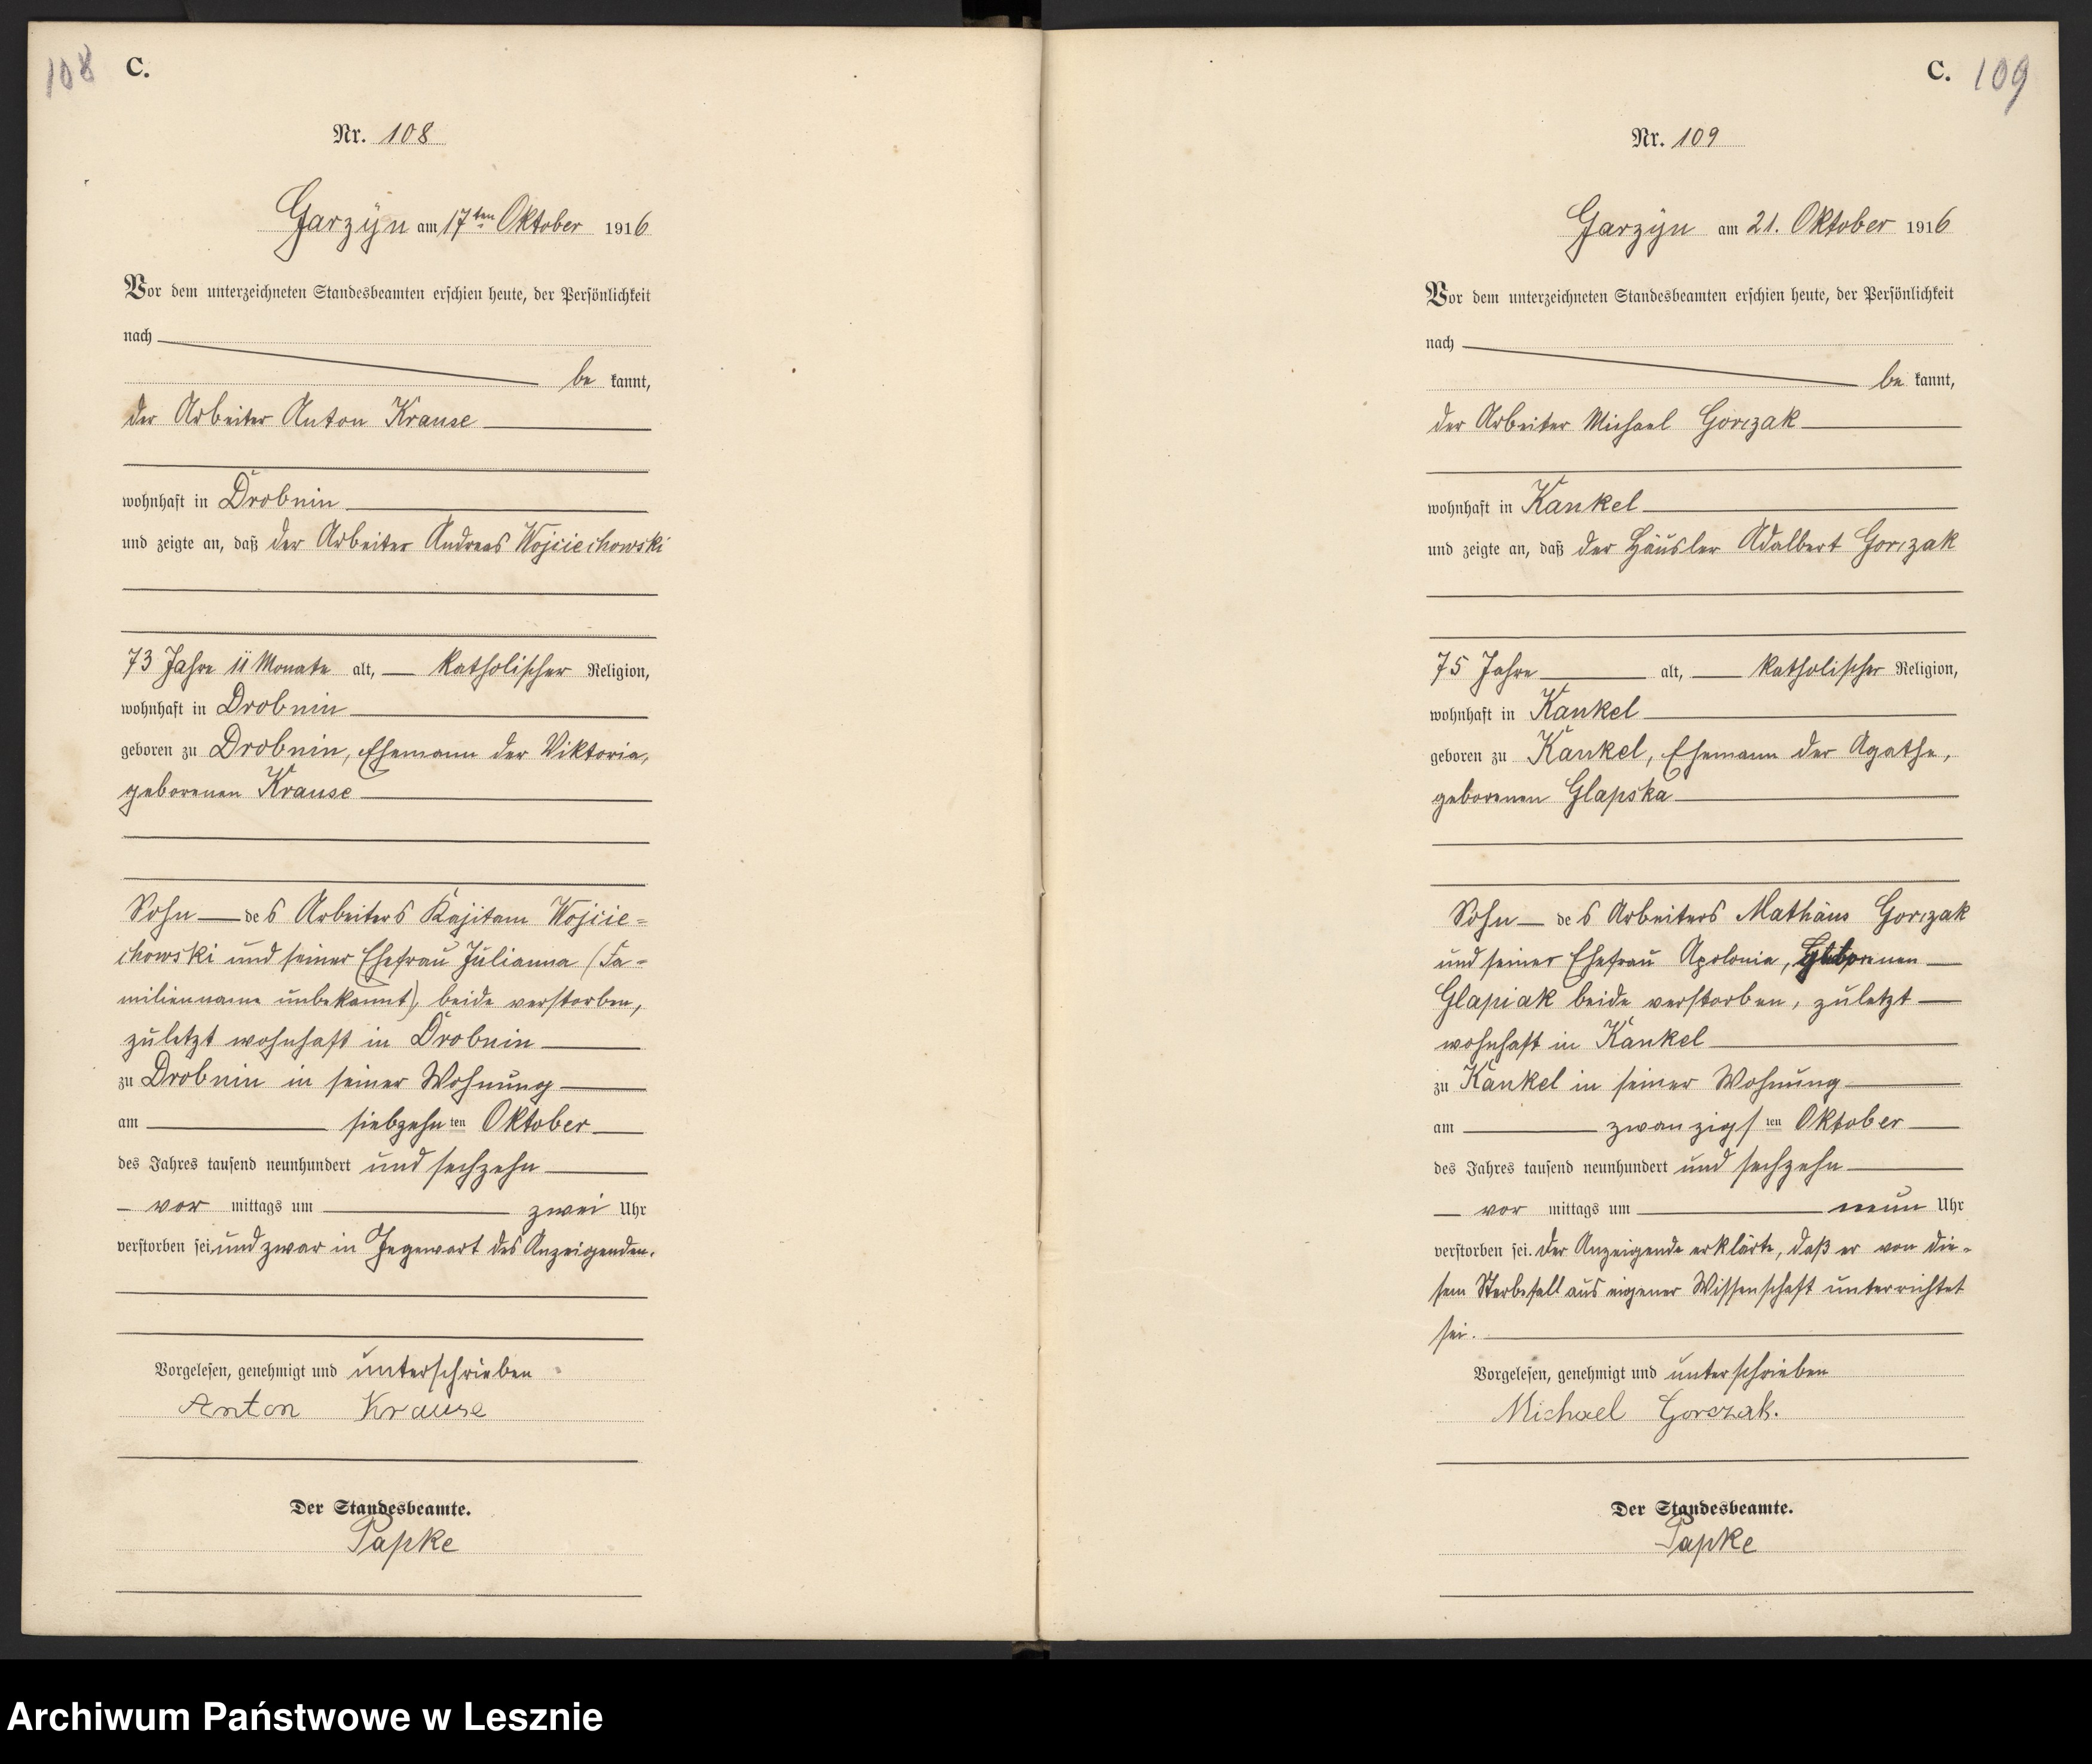 108 C.
Nr. 108
Garzyn am 17ten Oktober 1916
Vor dem unterzeichneten Standesbeamten erschien heute, der Persönlichkeit
nach
be kannt,
der Arbeiter Anton Krause
wohnhaft in Drobnin
und zeigte an, daß der Arbeiter Andreas Wojciechowski
73 Jahre 11 Monate alt, katholischer Religion,
wohnhaft in Drobnin
geboren zu Drobnin, Ehemann der Viktoria,
geborenen Krause
Sohn des Arbeiters Kajitam Wojcie=
chowski und seiner Ehefrau Julianna (Fa=
milienname unbekannt), beide verstorben,
zuletzt wohnhaft in Drobnin
zu Drobnin in seiner Wohnung
am siebzehnten Oktober
des Jahres tausend neunhundert und sechzehn
vor mittags um zwei Uhr
verstorben sei, und zwar in Gegenwart des Anzeigenden.
Vorgelesen, genehmigt und unterschrieben
Anton Krause
Der Standesbeamte.
Papke
C. 109
Nr. 109
Garzyn am 21. Oktober 1916
Vor dem unterzeichneten Standesbeamten erschien heute, der Persönlichkeit
nach
be kannt,
der Arbeiter Michael Gorczak
wohnhaft in Kankel
und zeigte an, daß der Häusler Adalbert Gorczak
75 Jahre alt, katholischer Religion,
wohnhaft in Kankel
geboren zu Kankel, Ehemann der Agathe,
geborenen Glapska
Sohn des Arbeiters Mathäus Gorczak
und seiner Ehefrau Apolonia, geborenen
Glapiak beide verstorben, zuletzt
wohnhaft in Kankel
zu Kankel in seiner Wohnung
am zwanzigsten Oktober
des Jahres tausend neunhundert und sechzehn
vor mittags um neun Uhr
verstorben sei. Der Anzeigende erklärte, daß er von die=
sem Sterbefall aus eigener Wissenschaft unterrichtet
sei.
Vorgelesen, genehmigt und unterschrieben
Michael Gorczak.
Der Standesbeamte.
Papke
Archiwum Państwowe w Lesznie